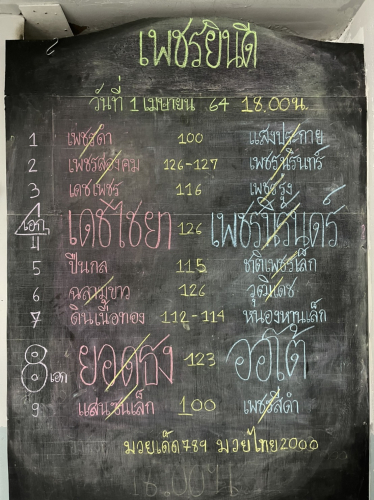 เพชรยินดี
วันที่ 1 เมษายน 64 18.00 น.
1 เพชรดา 100 แสงประกาย
2 เพชรสงคม 126-127 เพชรนรินทร์
3 เดชเพชร 116 เพชรรุ่ง
4 เอก เดชไชยา 126 เพชรนิรันดร์
5 ปืนกล 115 ชาติเพชรเล็ก
6 ฉลามขาว 126 วุฒิเดช
7 ดินเนื้อทอง 112-114 หนองหานเล็ก
8 เอก ยอดธง 123 ออโต้
9 แสนซนเล็ก 100 เพชรสีดำ
มวยเด็ด789 มวยไทย2000